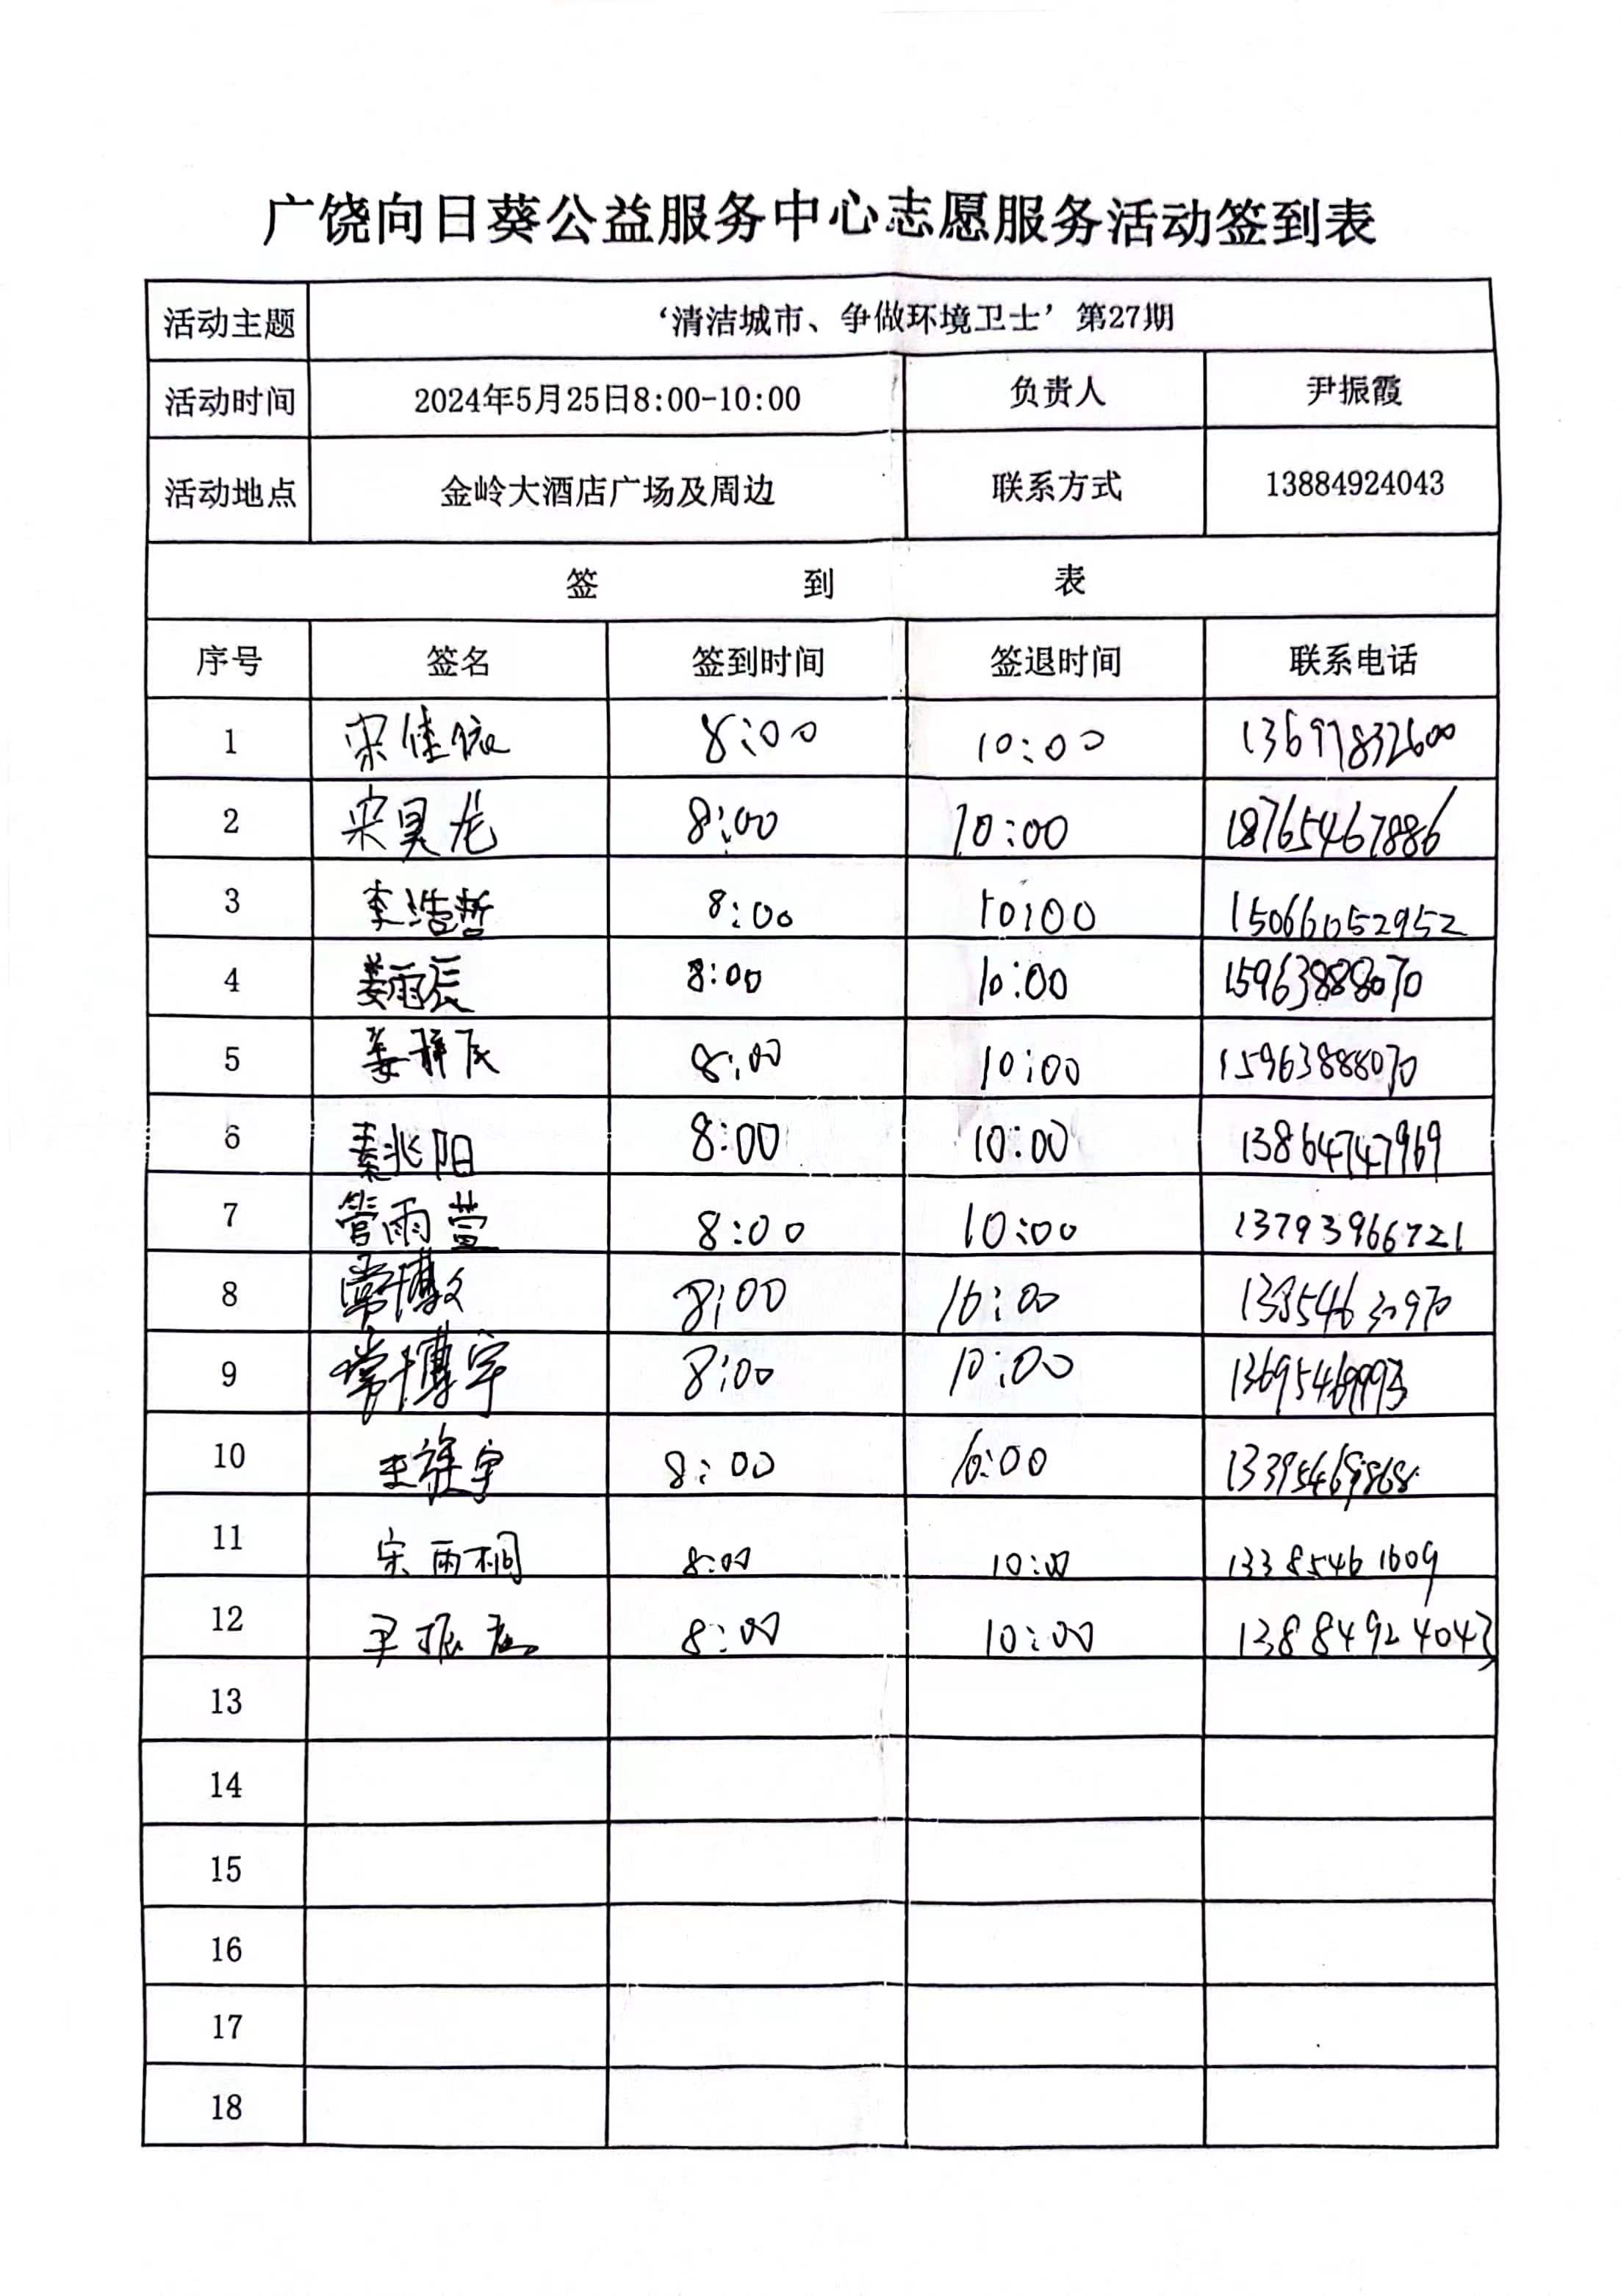 广饶向日葵公益服务中心志愿服务活动签到表
活动主题 ‘清洁城市、争做环境卫士’第27期
活动时间 2024年5月25日8:00-10:00 负责人 尹振霞
活动地点 金岭大酒店广场及周边 联系方式 13884924043
签 到 表
序号 签名 签到时间 签退时间 联系电话
1 宋佳依 8:00 10:00 13697832600
2 宋昊龙 8:00 10:00 18765467886
3 李浩哲 8:00 10:00 15066052952
4 姜雨辰 8:00 10:00 15963888070
5 姜 辰 8:00 10:00 15963888070
6 秦兆阳 8:00 10:00 13864747969
7 管雨萱 8:00 10:00 13793966721
8 常博文 8:00 10:00 13854630970
9 常博宇 8:00 10:00
10 王 宇 8:00 10:00 13395469868
11 宋雨桐 8:00 10:00 13385461609
12 尹振霞 8:00 10:00 13884924043
13
14
15
16
17
18